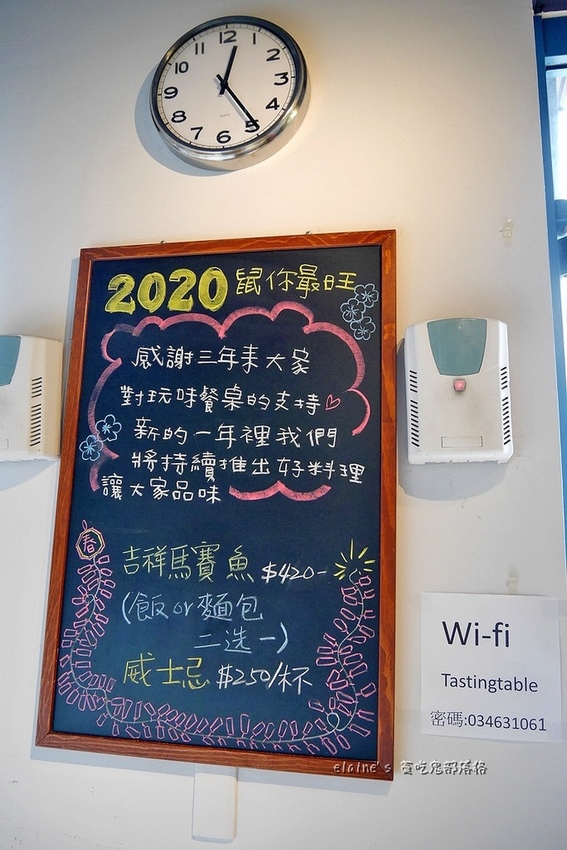 12
1
2
3
4
5
6
7
8
9
10
11
2020 鼠你最旺
感謝三年来大家
對玩味餐桌的支持♡
新的一年裡我們
將持續推出好料理
讓大家品味
春
吉祥馬賽魚 $420-
(飯or麵包
二选一)
威士忌 $250/杯
Wi-fi
Tastingtable
密碼:034631061
elaine's 貪吃鬼部落格